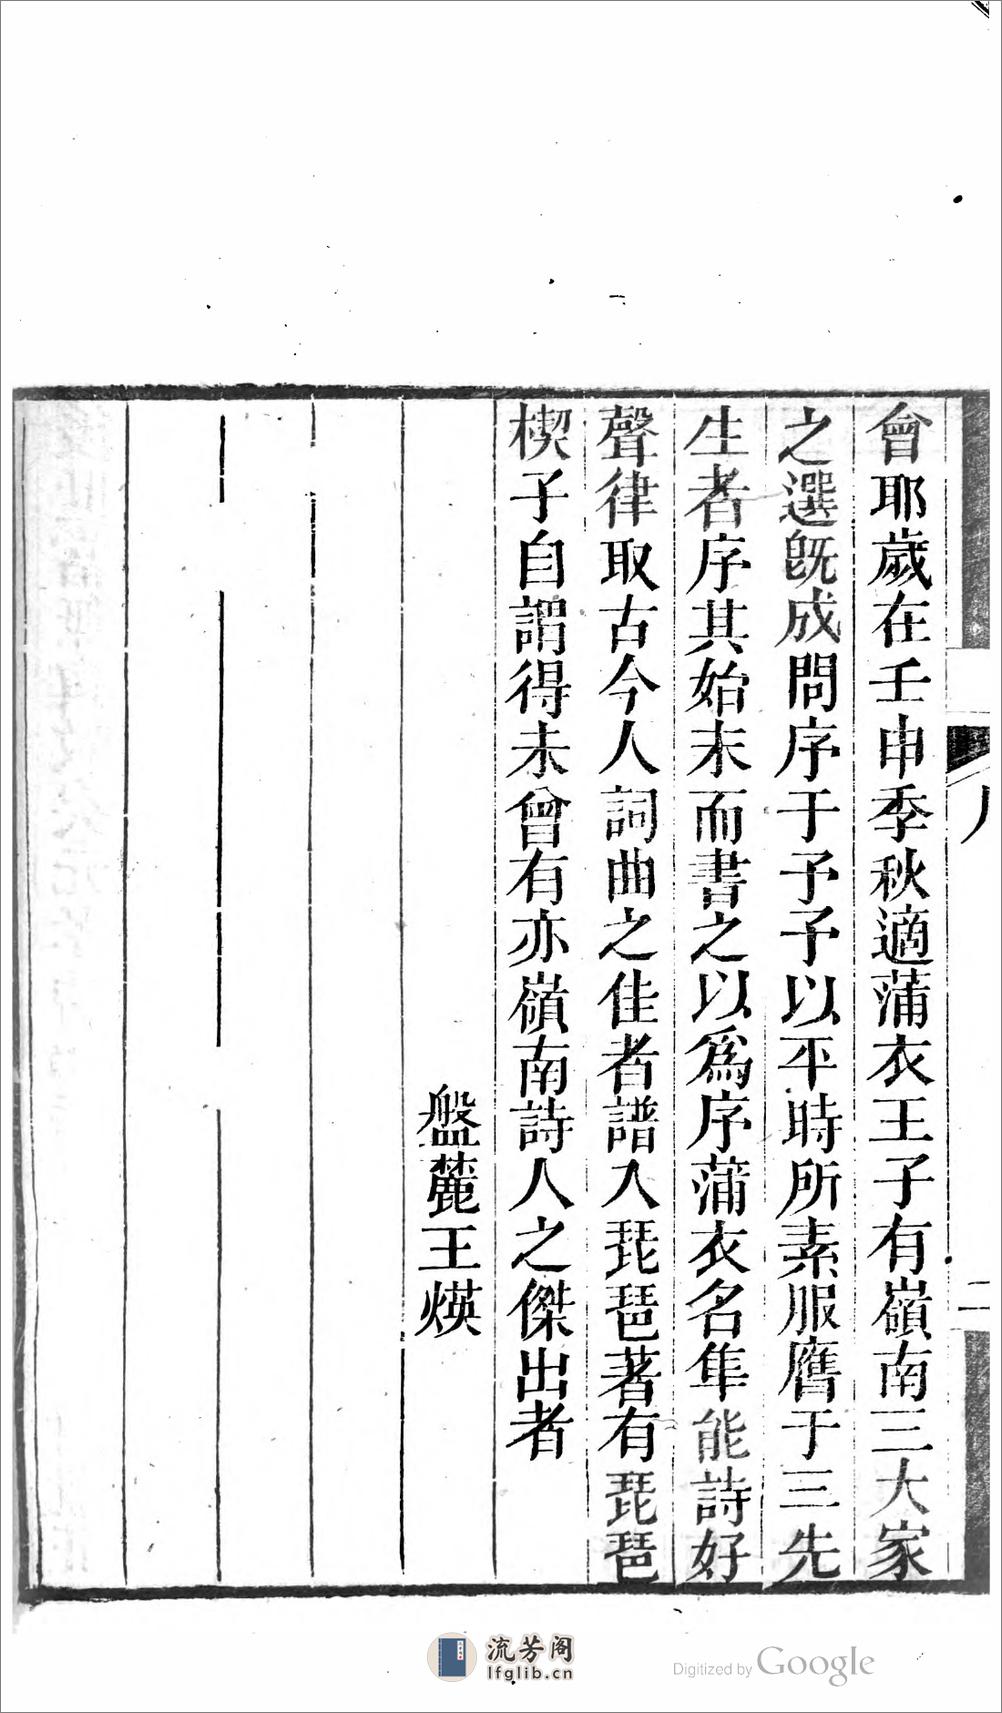 會耶歲在壬申季秋適蒲衣王子有嶺南三大家
之選旣成問序于予予以平時所素服膺于三先
生者序其始末而書之以爲序蒲衣名隼能詩好
聲律取古今人詞曲之佳者譜入琵琶著有琵琶
楔子自謂得未曾有亦嶺南詩人之傑出者
盤麓王煐
二
流芳阁
lfglib.cn
Digitized by Google